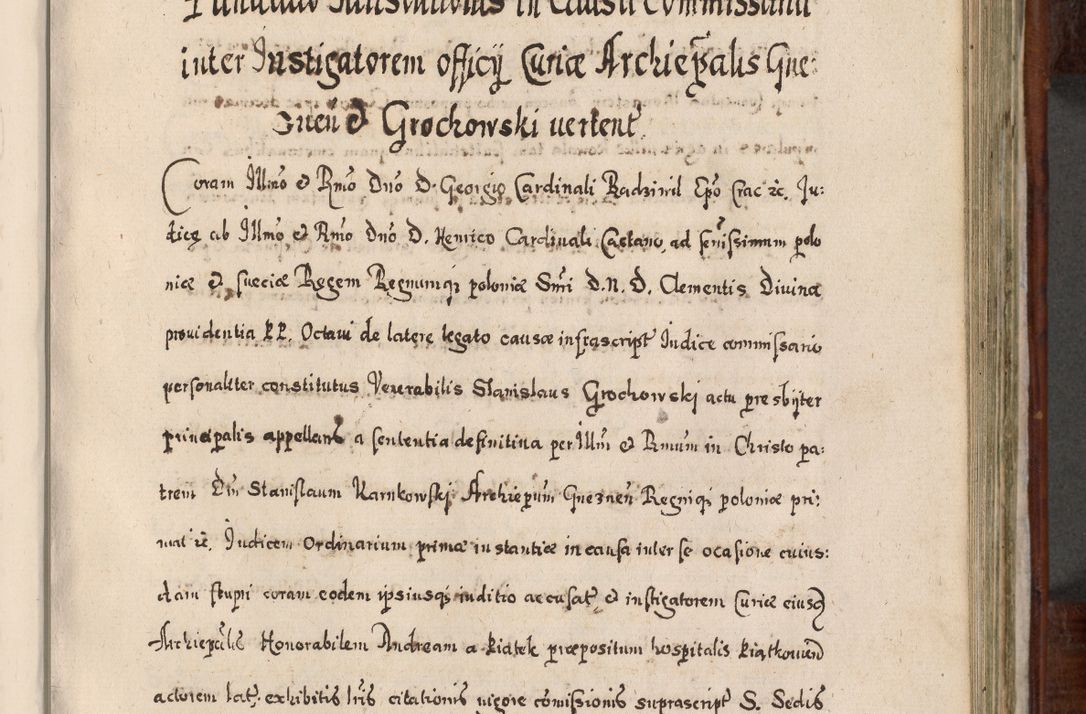 in Causa Commissaria
inter Instigatorem officij Curiæ Archiepalis Gne:
znen & Grochowski uertent
Coram Illmo & Rmo Dno D. Georgio Cardinali Radziuil Epo Crac &c. Ju:
dice ab Illmo & Rmo Dno D. Henrico Cardinali Caetano, ad serissimum polo
niæ & sueciæ Regem Regnumqȝ poloniæ Smi D. N. D. Clementis Diuina
prouidentia PP. Octaui de latere legato causæ infrascript Judice commissario
personaliter constitutus Venerabilis Stanislaus Grochowskj actu presbijter
principalis appellans a sententia definitiua per Illm & Rmum in Christo pa:
trem Dm Stanislaum Karnkowskj Archiepum Gneznen Regniqȝ poloniæ pri:
mat &c. Judicem Ordinarium primæ instantiæ in causa inter se ocasione cuius:
dam stupri coram eodem ipsiusqȝ inditio accusat & instigatorem Curiæ eiusd
Archiepalis Honorabilem Andream a Piątek præpositum hospitalis Piątkouien
actorem lat exhibitis lris citationis uigore comissionis suprascript S. Sedis